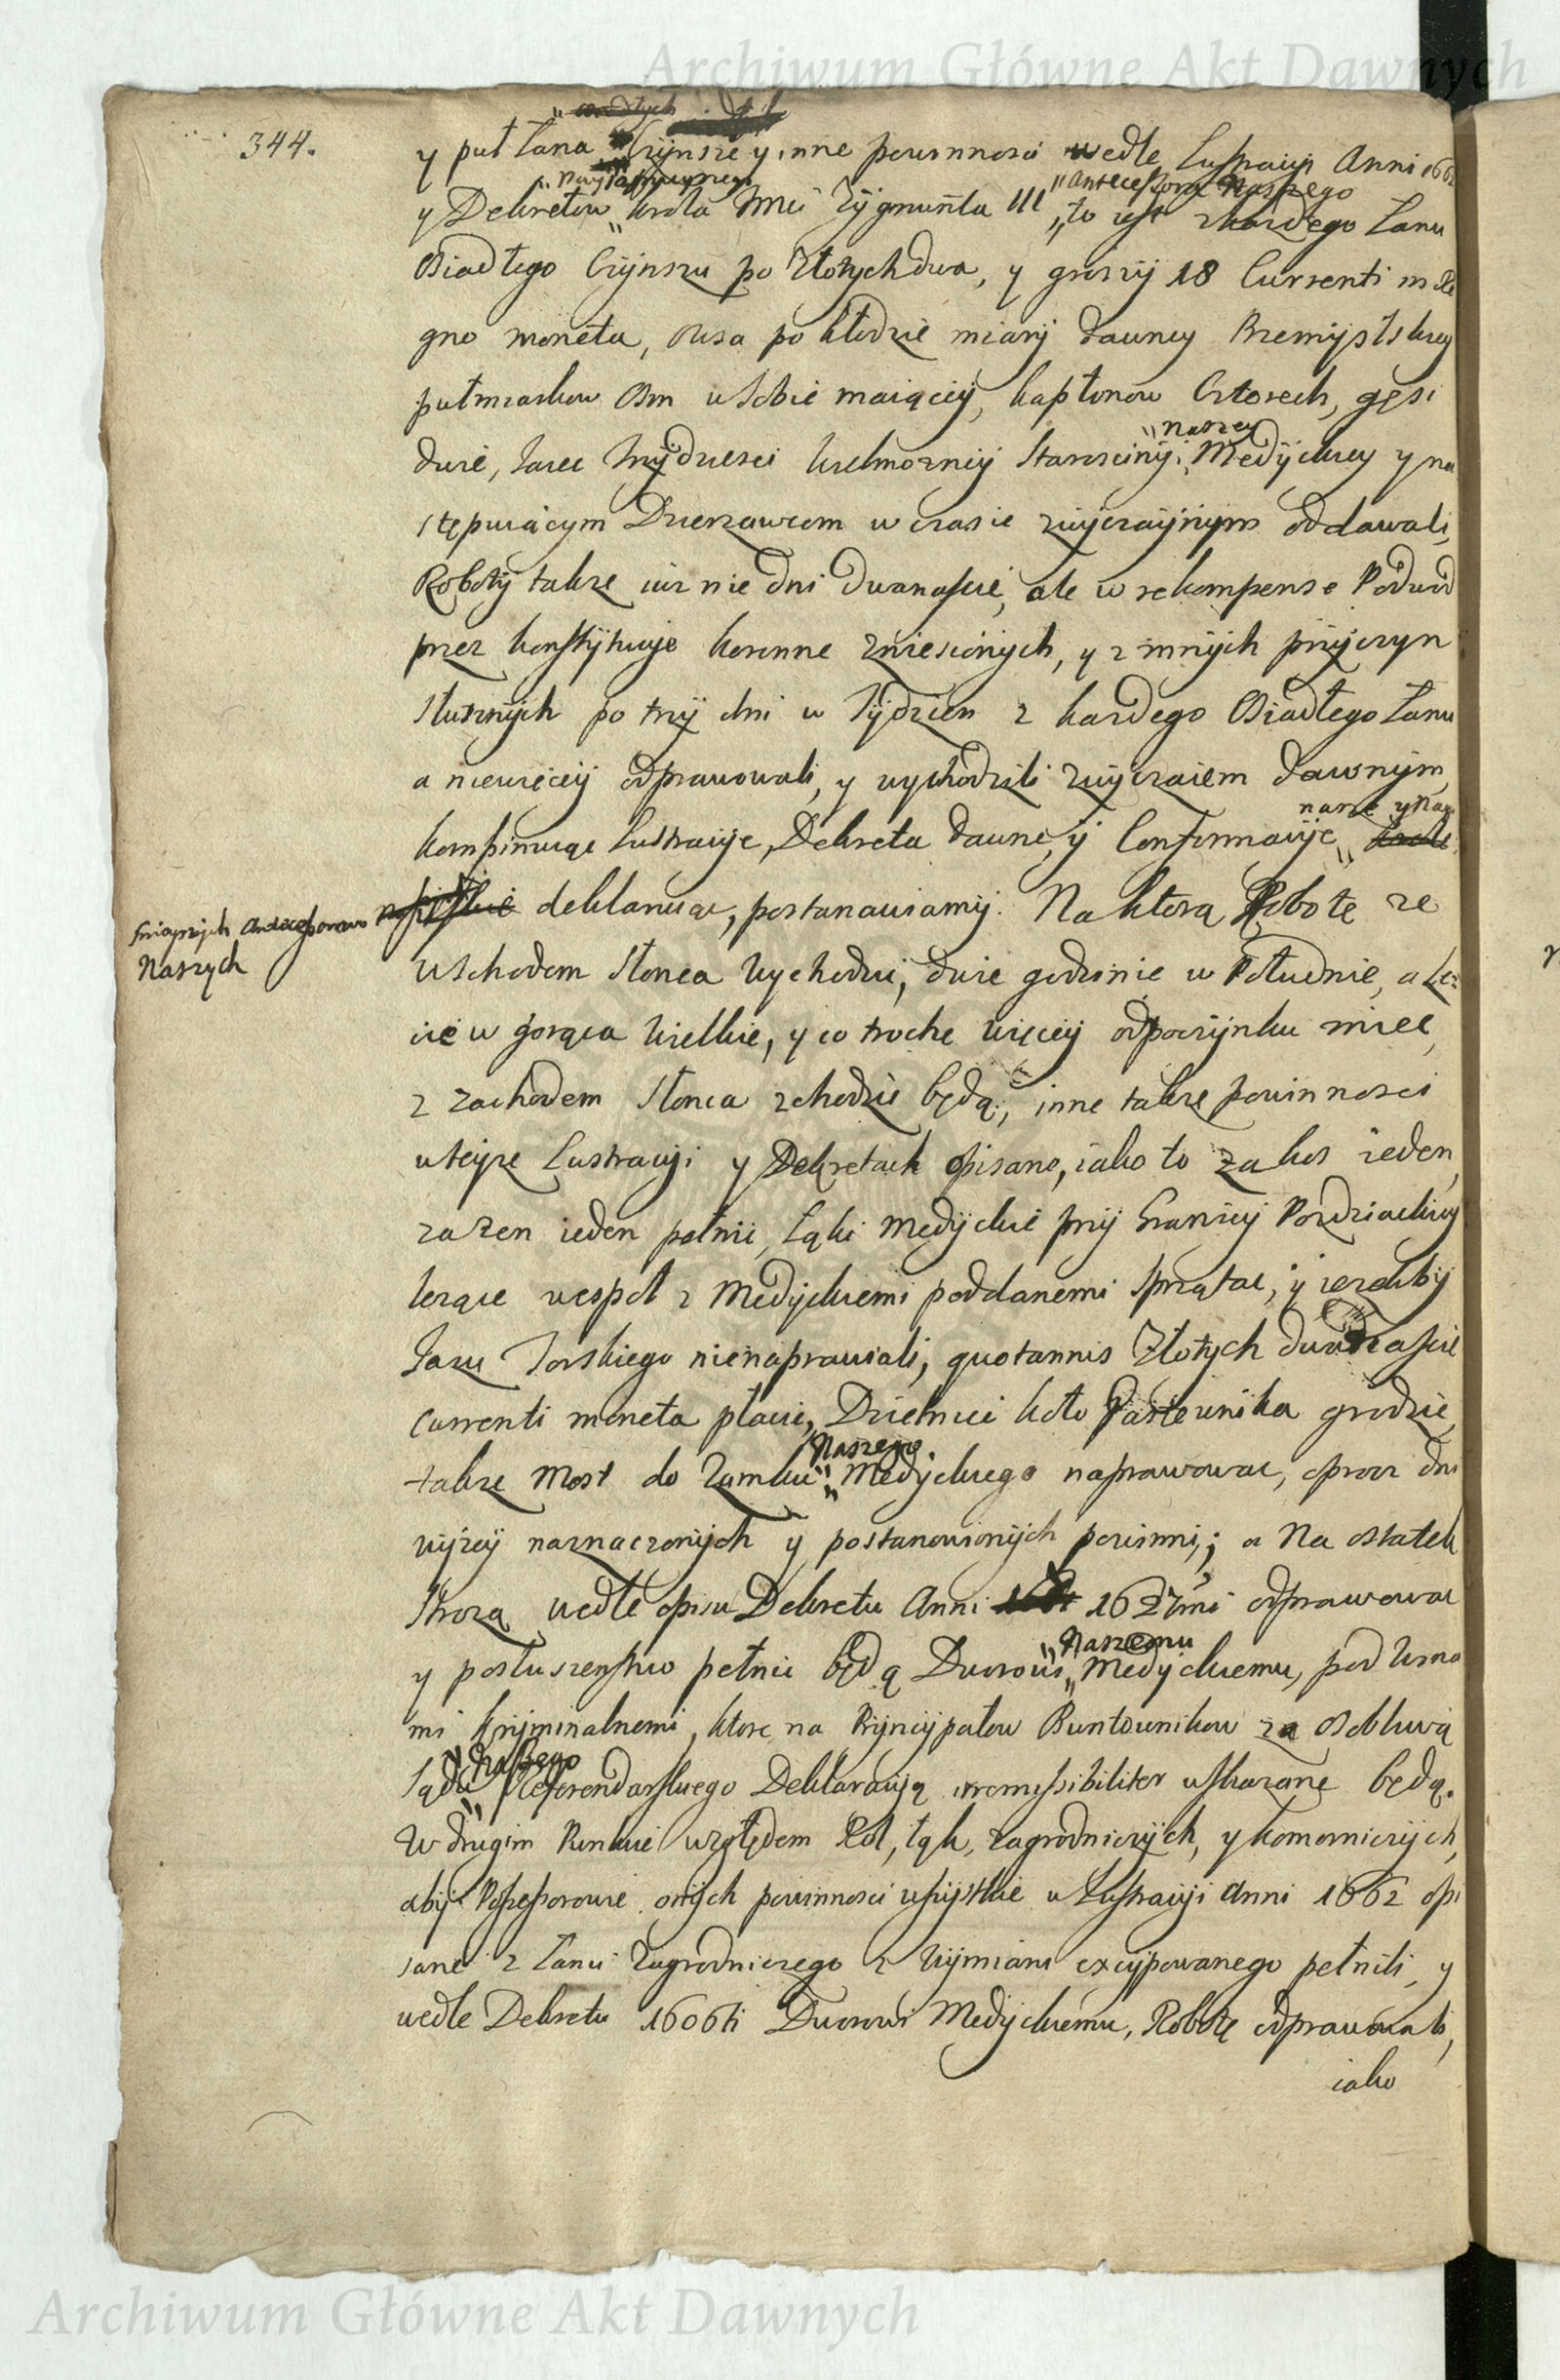 Archiwum Główne Akt Dawnych
344.
y puł Łana Czynsze y inne powinnosci wedle Lustracyi Anni 1662
Nayiasnieyszego Antecessora Naszego
y Dekretow Krola Jmci Zygmunta III to iest z kazdego Łanu
Osiadłego Czynszu po Złotych dwa, y groszy 18 Currenti in Re
gno moneta, Owsa po kłodzie miary dawney Przemyslskiey
pułmiarkow Osm w Sobie maiącey, kapłonow Czterech, gęsi
Naszey
dwie, Jaiec trzydziesci Wielmozney Starosciny Medyckiey y na
stępuiącym Dzierzawcom w czasie zwyczaynym oddawali,
Roboty takze iuz nie dni dwanascie, ale w rekompensę Podwod
przez konstytucye koronne zniesionych, y z innych przyczyn
słusznych po trzy dni w Tydzien z kazdego Osiadłego Łanu
a niewięcey odprawowali, y wychodzili zwyczaiem dawnym,
nasze y Nay
kompinuiąc Lustracye, Dekreta dawne, y Confirmacye
deklaruiąc, postanawiamy. Na ktorą Robotę ze
iasnieyszych Antecessorow
Naszych
Wschodem Słonca Wychodzić, dwie godzinie w Południe, a le
cie w gorąca Wielkie, y co troche więcey odpoczynku miec,
z zachodem Słonca zchodzić będą; inne takze powinnosci
w teyze Lustracyi y Dekretach opisane, iako to za kos ieden,
za zen ieden pełnic, Łąki Medyckie przy Granicy Pozdziackiey
lezące wespoł z Medyckiemi poddanemi Sprzątac, y iezeliby
Jazu Torskiego nienaprawiali, quotannis Złotych dwanascie
currenti moneta płacić, Dzielnici koło Pasternika grodzić,
Naszego
takze Most do Zamku Medyckiego naprawowac, oprocz dni
wyzey naznaczonych y postanowionych powinni; a Na ostatek
Strozą wedle opisu Dekretu Anni 1627mi odprawowac
Naszemu
y posłuszenstwo pełnic będą Dworowi Medyckiemu, pod Wina
mi kryminalnemi, ktore na Pryncypałow Buntownikow za osobliwą
Naszego
Sądu Referendarskiego Deklaracyą irremissibiliter wskazane będą.
W drugim Punkcie względem Rol, łąk, zagrodniczych, y komorniczych,
aby Possessorowie onych powinnosci wszystkie w Lustracyi Anni 1662 opi
sane z Łanu Zagrodniczego z Wymiaru excypowanego pełnili, y
wedle Dekretu 1606ti Dworowi Medyckiemu, Robotę odprawowali,
iako
Archiwum Główne Akt Dawnych